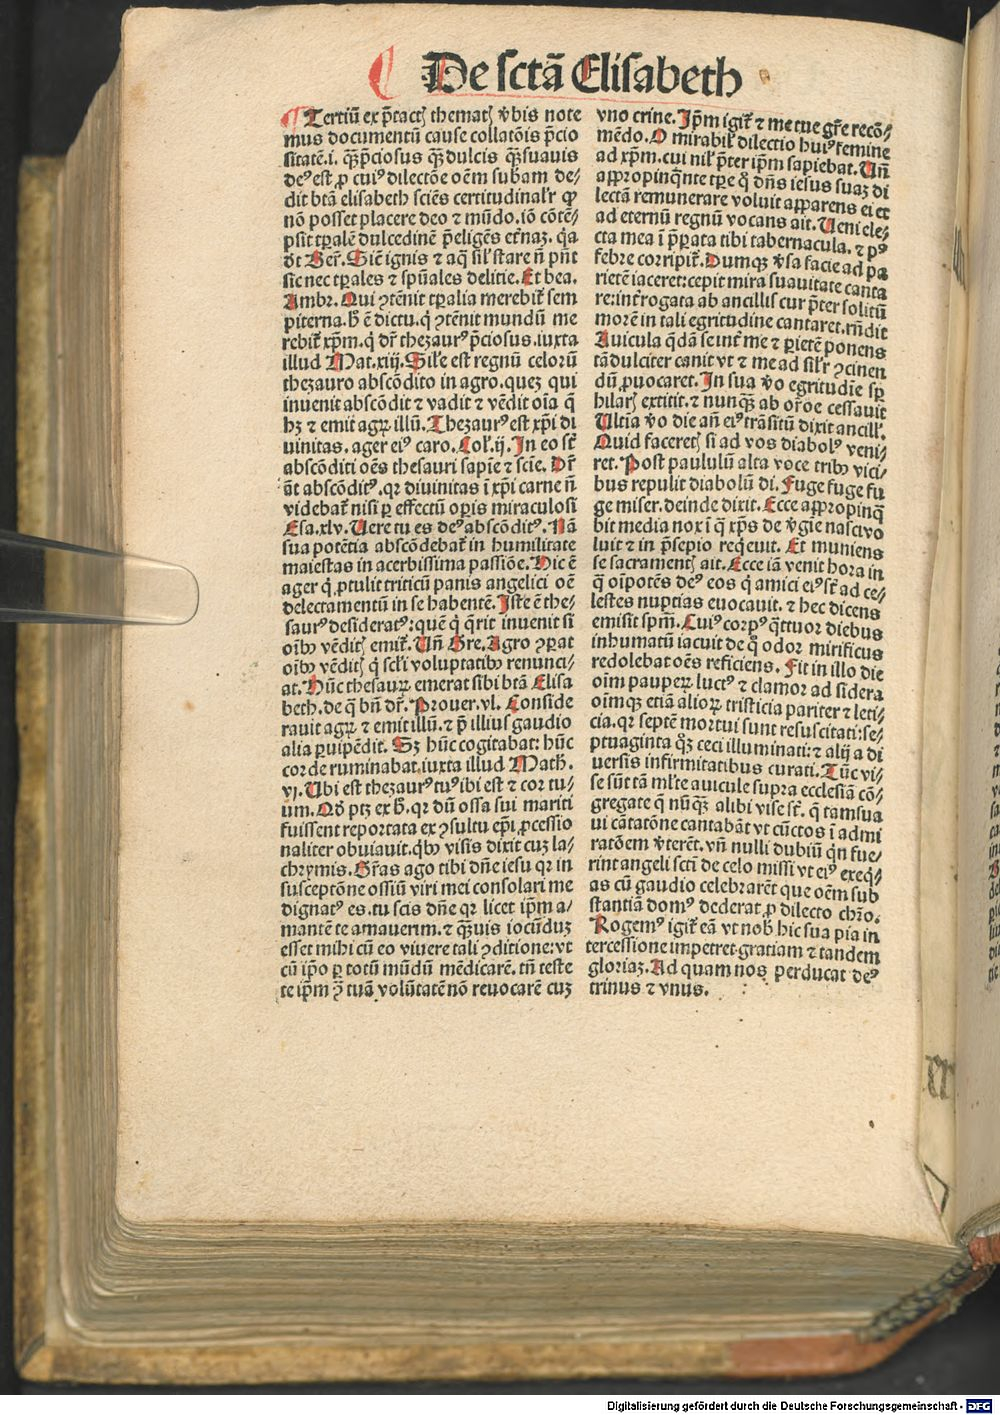 De sctā Elisabeth
Tertiū ex p̄tact͛ themat͛ v̄bis note
mus documentū cause collatōis p̄cio
sitatē.i. q̄ꝫ p̄ciosus q̄ꝫ dulcis q̄ꝫ suauis
deꝰ est, ꝓ cuiꝰ dilectōe oēm subam de⸗
dit btā elisabeth sciēs certitudinalr̄ ꝙ
nō posset placere deo ⁊ mūdo. iō cōtē⸗
psit tꝑalē dulcedinē p̄eligēs et̄naꝫ. q̄a
dt Ber̄. Sic̄ ignis ⁊ aq̄ sil̄ stare n̄ pn̄t
sic nec tꝑales ⁊ spūales delitie. Et bea.
Ambr. Qui ꝯtēnit tꝑalia merebit̄ sem
piterna. h̄ ē dictu. q̇ ꝯtēnit mundū me
rebit̄ xp̄m. q̇ dr̄ thezaurꝰ p̄ciosus. iuxta
illud Mat. xiij. Sil̄e est regnū celoꝝū
thezauro abscōdito in agro. queꝫ qui
inuenit abscōdit ⁊ vadit ⁊ vēdit oīa q̄
hꝫ ⁊ emit agꝝ illū. Thezaurꝰ est xp̄i di
uinitas. ager eiꝰ caro. Col̄. ij. In eo st̄
abscōditi oēs thesauri sapīe ⁊ scīe. Dr̄
āt abscōditꝰ. qꝛ diuinitas ī xp̄i carne n̄
videbat̄ nisi ꝑ effectū oꝑis miraculosi
Esa. xlv. Uere tu es deꝰ abscōditꝰ. Nā
sua potētia abscōdebat̄ in humilitate
maiestas in acerbissima passiōe. Hic ē
ager q̇ ꝓtulit triticū panis angelici oē
delectamentū in se habentē. Iste ē the⸗
saurꝰ desideratꝰ: quē q̇ q̄rit inuenit si
oībꝰ vēdit͛ emit̄. Un̄ Gre. Agro ꝯꝑat
oībꝰ vēdit͛ q̇ scl̄i voluptatibꝰ renunci⸗
at. Hūc thesauꝝ emerat sibi btā Elisa
beth. de q̄ bn̄ dr̄. Prouer. vl. Conside
rauit agꝝ ⁊ emit illū. ⁊ p̄ illius gaudio
alia ꝑuipēdit. Sꝫ hūc cogitabat: hūc
corde ruminabat, iuxta illud Math.
vj. Ubi est thezaurꝰ tuꝰ ibi est ⁊ cor tu⸗
um. Qd̄ ptꝫ ex h̄. qꝛ dū ossa sui mariti
fuissent reportata ex ꝯsultu ep̄i ꝓcessio
naliter obuiauit. qbꝰ visis dixit cuꝫ la⸗
chrymis. Gr̄as ago tibi dn̄e iesu qꝛ in
susceptōne ossiū viri mei consolari me
dignatꝰ es. tu scis dn̄e qꝛ licet ip̄m a⸗
mantē te amauerim. ⁊ q̄ꝫuis iocūduꝫ
esset mihi cū eo viuere tali ꝯditione: vt
cū ip̄o ꝑ totū mūdū mēdicarē. tn̄ teste
te ip̄m ꝯ̄ tuā volūtatē nō reuocarē cuꝫ
vno crine. Ip̄m igit̄ ⁊ me tue gr̄e recō⸗
mēdo. O mirabil̄ dilectio huiꝰ femine
ad xp̄m. cui nil̄ p̄ter ip̄m sapiebat. Un̄
appropinq̄nte tꝑe q̊ dn̄s iesus suaꝫ di
lectā remunerare voluit apparens ei et
ad eternū regnū vocans ait. Ueni ele⸗
cta mea ī p̄ꝑata tibi tabernacula. ⁊ pꝰ
febre corripit̄. Dumqꝫ v̄sa facie ad pa
rietē iaceret: cepit mira suauitate canta
re: int̄rogata ab ancillis cur p̄ter solitū
morē in tali egritudine cantaret. rn̄dit
Auicula q̄dā se int̄ me ⁊ ꝑietē ponens
tā dulciter canit vt ⁊ me ad sil̄r ꝯcinen
dū ꝓuocaret. In sua v̊o egritudīe sꝑ
hilar͛ extitit. ⁊ nunqꝫ ab or̄oe cessauit
Ultīa v̊o die an̄ eiꝰ trāsitū dixit ancill̄.
Quid faceret͛ si ad vos diabolꝰ veni⸗
ret. Post paululū alta voce tribꝰ vici⸗
bus repulit diabolū di. Fuge fuge fu
ge miser. deinde dixit. Ecce appropinq̄
bit media nox ī q̄ xp̄s de v̄gīe nasci vo
luit ⁊ in p̄sepio reqeuit. Et muniens
se sacrament͛ ait. Ecce iā venit hora in
q̄ oīpotēs deꝰ eos q̇ amici eiꝰ st̄ ad ce⸗
lestes nuptias euocauit. ⁊ hec dicens
emisit sp̄m. Cuiꝰ corpꝰ q̄ttuor diebus
inhumatū iacuit de q̊ odor mirificus
redolebat oēs reficiens. Fit in illo die
oīm pauperꝝ luctꝰ ⁊ clamor ad sidera
oīmqꝫ etiā alioꝝ tristicia pariter ⁊ leti⸗
cia. qꝛ septē mortui sunt resuscitati: se⸗
ptuaginta q̊ꝫ ceci illuminati: ⁊ alij a di
uersis infirmitatibus curati. Tūc vi⸗
se sūt tā ml̄te auicule supra ecclesiā cō⸗
gregate q̄ nūq̄ꝫ alibi vise st̄. q̄ tam sua
ui cātatōne cantabāt vt cūctos ī admi
ratōem v̄terēt. vn̄ nulli dubiū qn̄ fue⸗
rint angeli sctī de celo missi vt eiꝰ exeq̄⸗
as cū gaudio celebrarēt que oēm sub
stantiā domꝰ dederat ꝓ dilecto chr̄o.
Rogemꝰ igit̄ eā vt nob̄ hic sua pia in
tercessione impetret gratiam ⁊ tandem
gloriaꝫ. Ad quam nos perducat deꝰ
trinus ⁊ vnus.
Digitalisierung gefördert durch die Deutsche Forschungsgemeinschaft - DFG